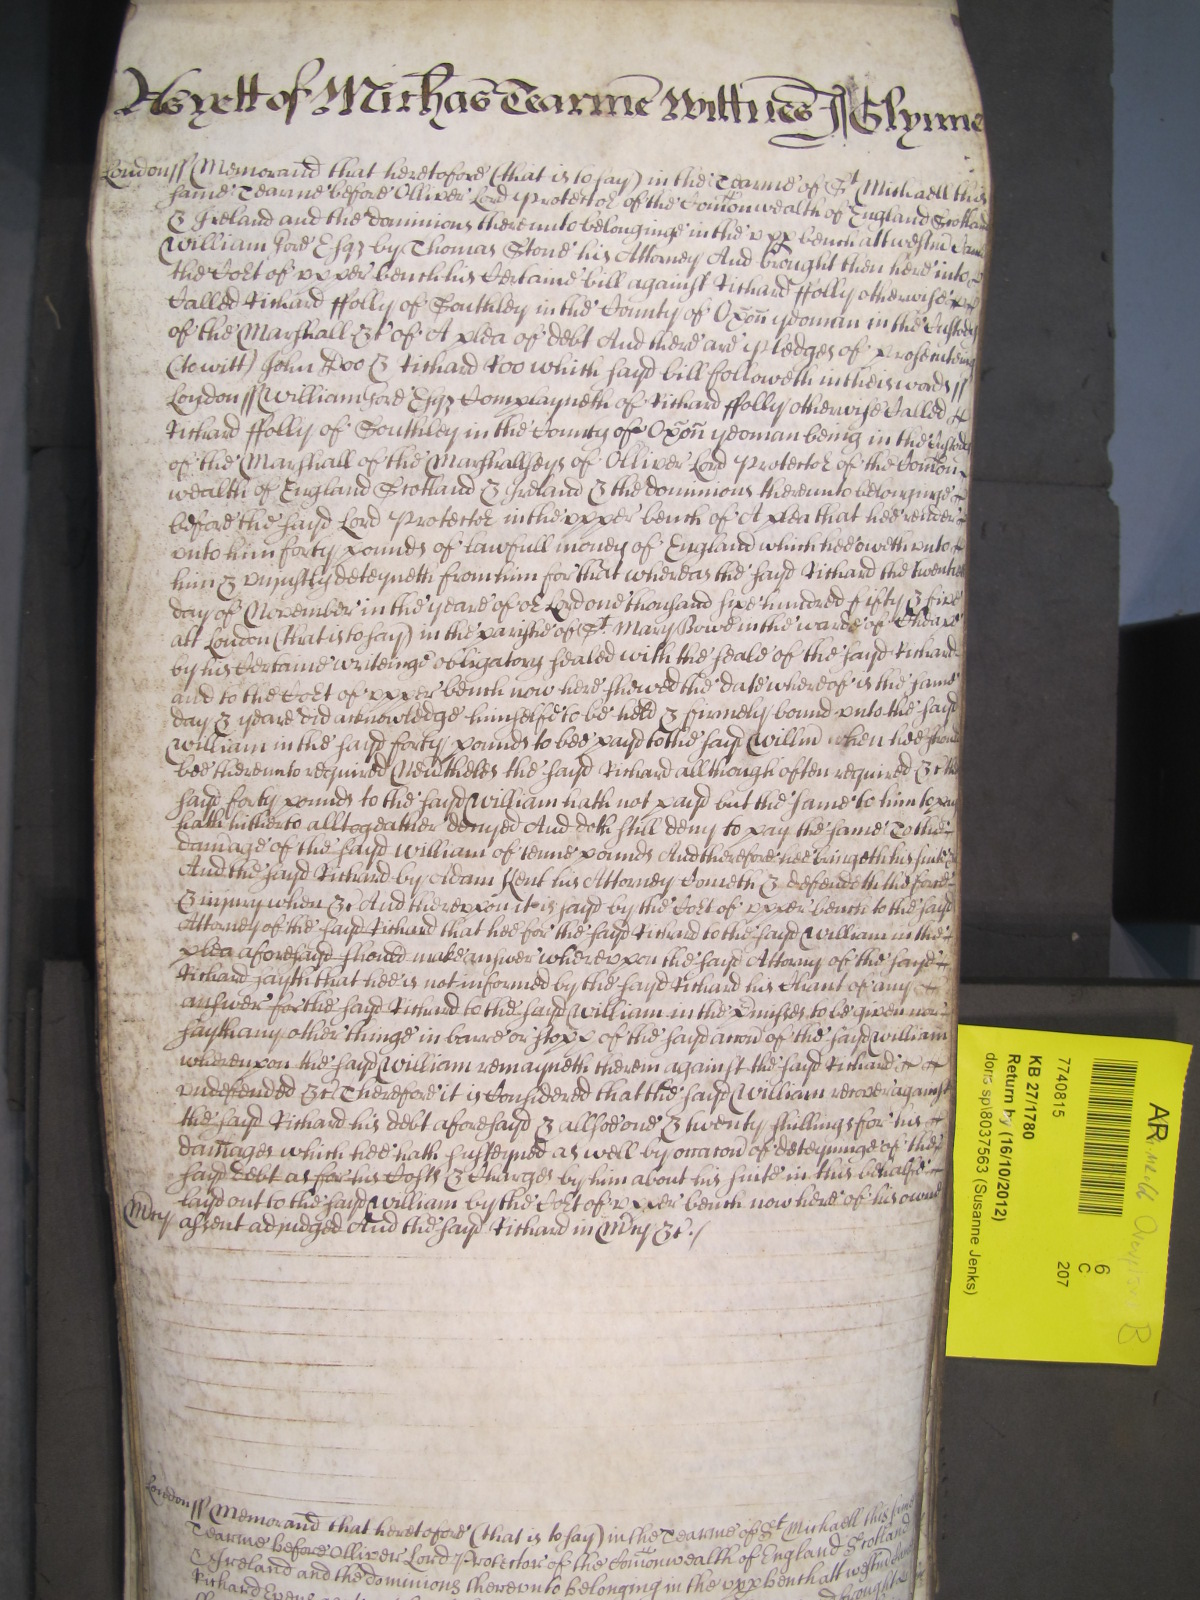 As yett of Michas Tearme Wittnes J Glynne
London ss Memorand that heretofore (that is to say) in the Tearme of St Michaell this
same Tearme before Olliver Lord Protector of the Comonwealth of England Scotland
& Ireland and the dominions thereunto belonginge in the upp bench att westmr Came
William Gore Esqr by Thomas Stone his Attorney And brought then here into
the Cort of upper bench his Certaine bill against Richard ffolly otherwise
Called Richard ffolly of Southley in the County of Oxon yeoman in the Custody
of the Marshall &c of A plea of debt And there are pledges of prosecuteing
(to witt) John Doo & Richard Roo which sayd bill followeth in theis words ss
London ss William Gore Esqr Complayneth of Richard ffolly otherwise Called
Richard ffolly of Southley in the County of Oxon yeoman being in the Custody
of the Marshall of the Marshallseys of Olliver Lord Protector of the Comon
wealth of England Scotland & Ireland & the dominions thereunto belonginge
before the sayd Lord Protector in the upper bench of A plea that hee render
unto him forty pounds of lawfull money of England which hee oweth unto
him & unjustly deteyneth from him for that whereas the sayd Richard the twentieth
day of November in the yeare of or Lord one thousand sixe hundred fifty & five
att London (that is to say) in the parishe of St Mary Bowe in the warde of Cheape
by his Certaine writeinge obligatory sealed with the seale of the sayd Richard
and to the Cort of upper bench now here shewed the date whereof is the same
day & yeare did acknowledge himselfe to be held & firmely bound unto the sayd
William in the sayd forty pounds to bee payd to the sayd Willm when hee should
bee thereunto required Nevtheles the sayd Richard allthough often required &c the
sayd forty pounds to the sayd William hath not payd but the same to him to pay
hath hitherto alltogeather denyed And doth still deny to pay the same To the
damage of the sayd William of tenne pounds And therefore hee bringeth his suite &c
And the sayd Richard by Adam Kent his Attorney Cometh & defendeth the force
& injury when &c And thereupon it is sayd by the Cort of upper bench to the sayd
Attorney of the sayd Richard that hee for the sayd Richard to the sayd William in the
plea aforesayd should make answer whereupon the sayd Attorny of the sayd
Richard sayth that hee is not informed by the sayd Richard his Cleant of any
answer for the sayd Richard to the sayd William in the Pmisses to be given nor
sayth any other thinge in barre or stopp of the sayd accon of the sayd William
whereupon the sayd William remayneth therein against the sayd Richard
undefended &c Therefore it is Considered that the sayd William recover against
the sayd Richard his debt aforesayd & allsoe one & twenty shillings for his
damages which hee hath susteyned as well by occacon of deteyninge of the
sayd debt as for his Costs & Charges by him about his suite in this behalfe
layd out to the sayd William by the Cort of upper bench now here of his owne
Mcy assent adjudged And the sayd Richard in Mcy &c ./
London ss Memorand that heretofore (that is to say) in the Tearme of St Michaell this same
Tearme before Olliver Lord Protector of the Comonwealth of England Scotland
& Ireland and the dominions thereunto belonging in the upp bench att westmr Came
Richard
AR
6
C
207
7740815
KB 27/1780
Return by (16/10/2012)
doris sp\8037563 (Susanne Jenks)